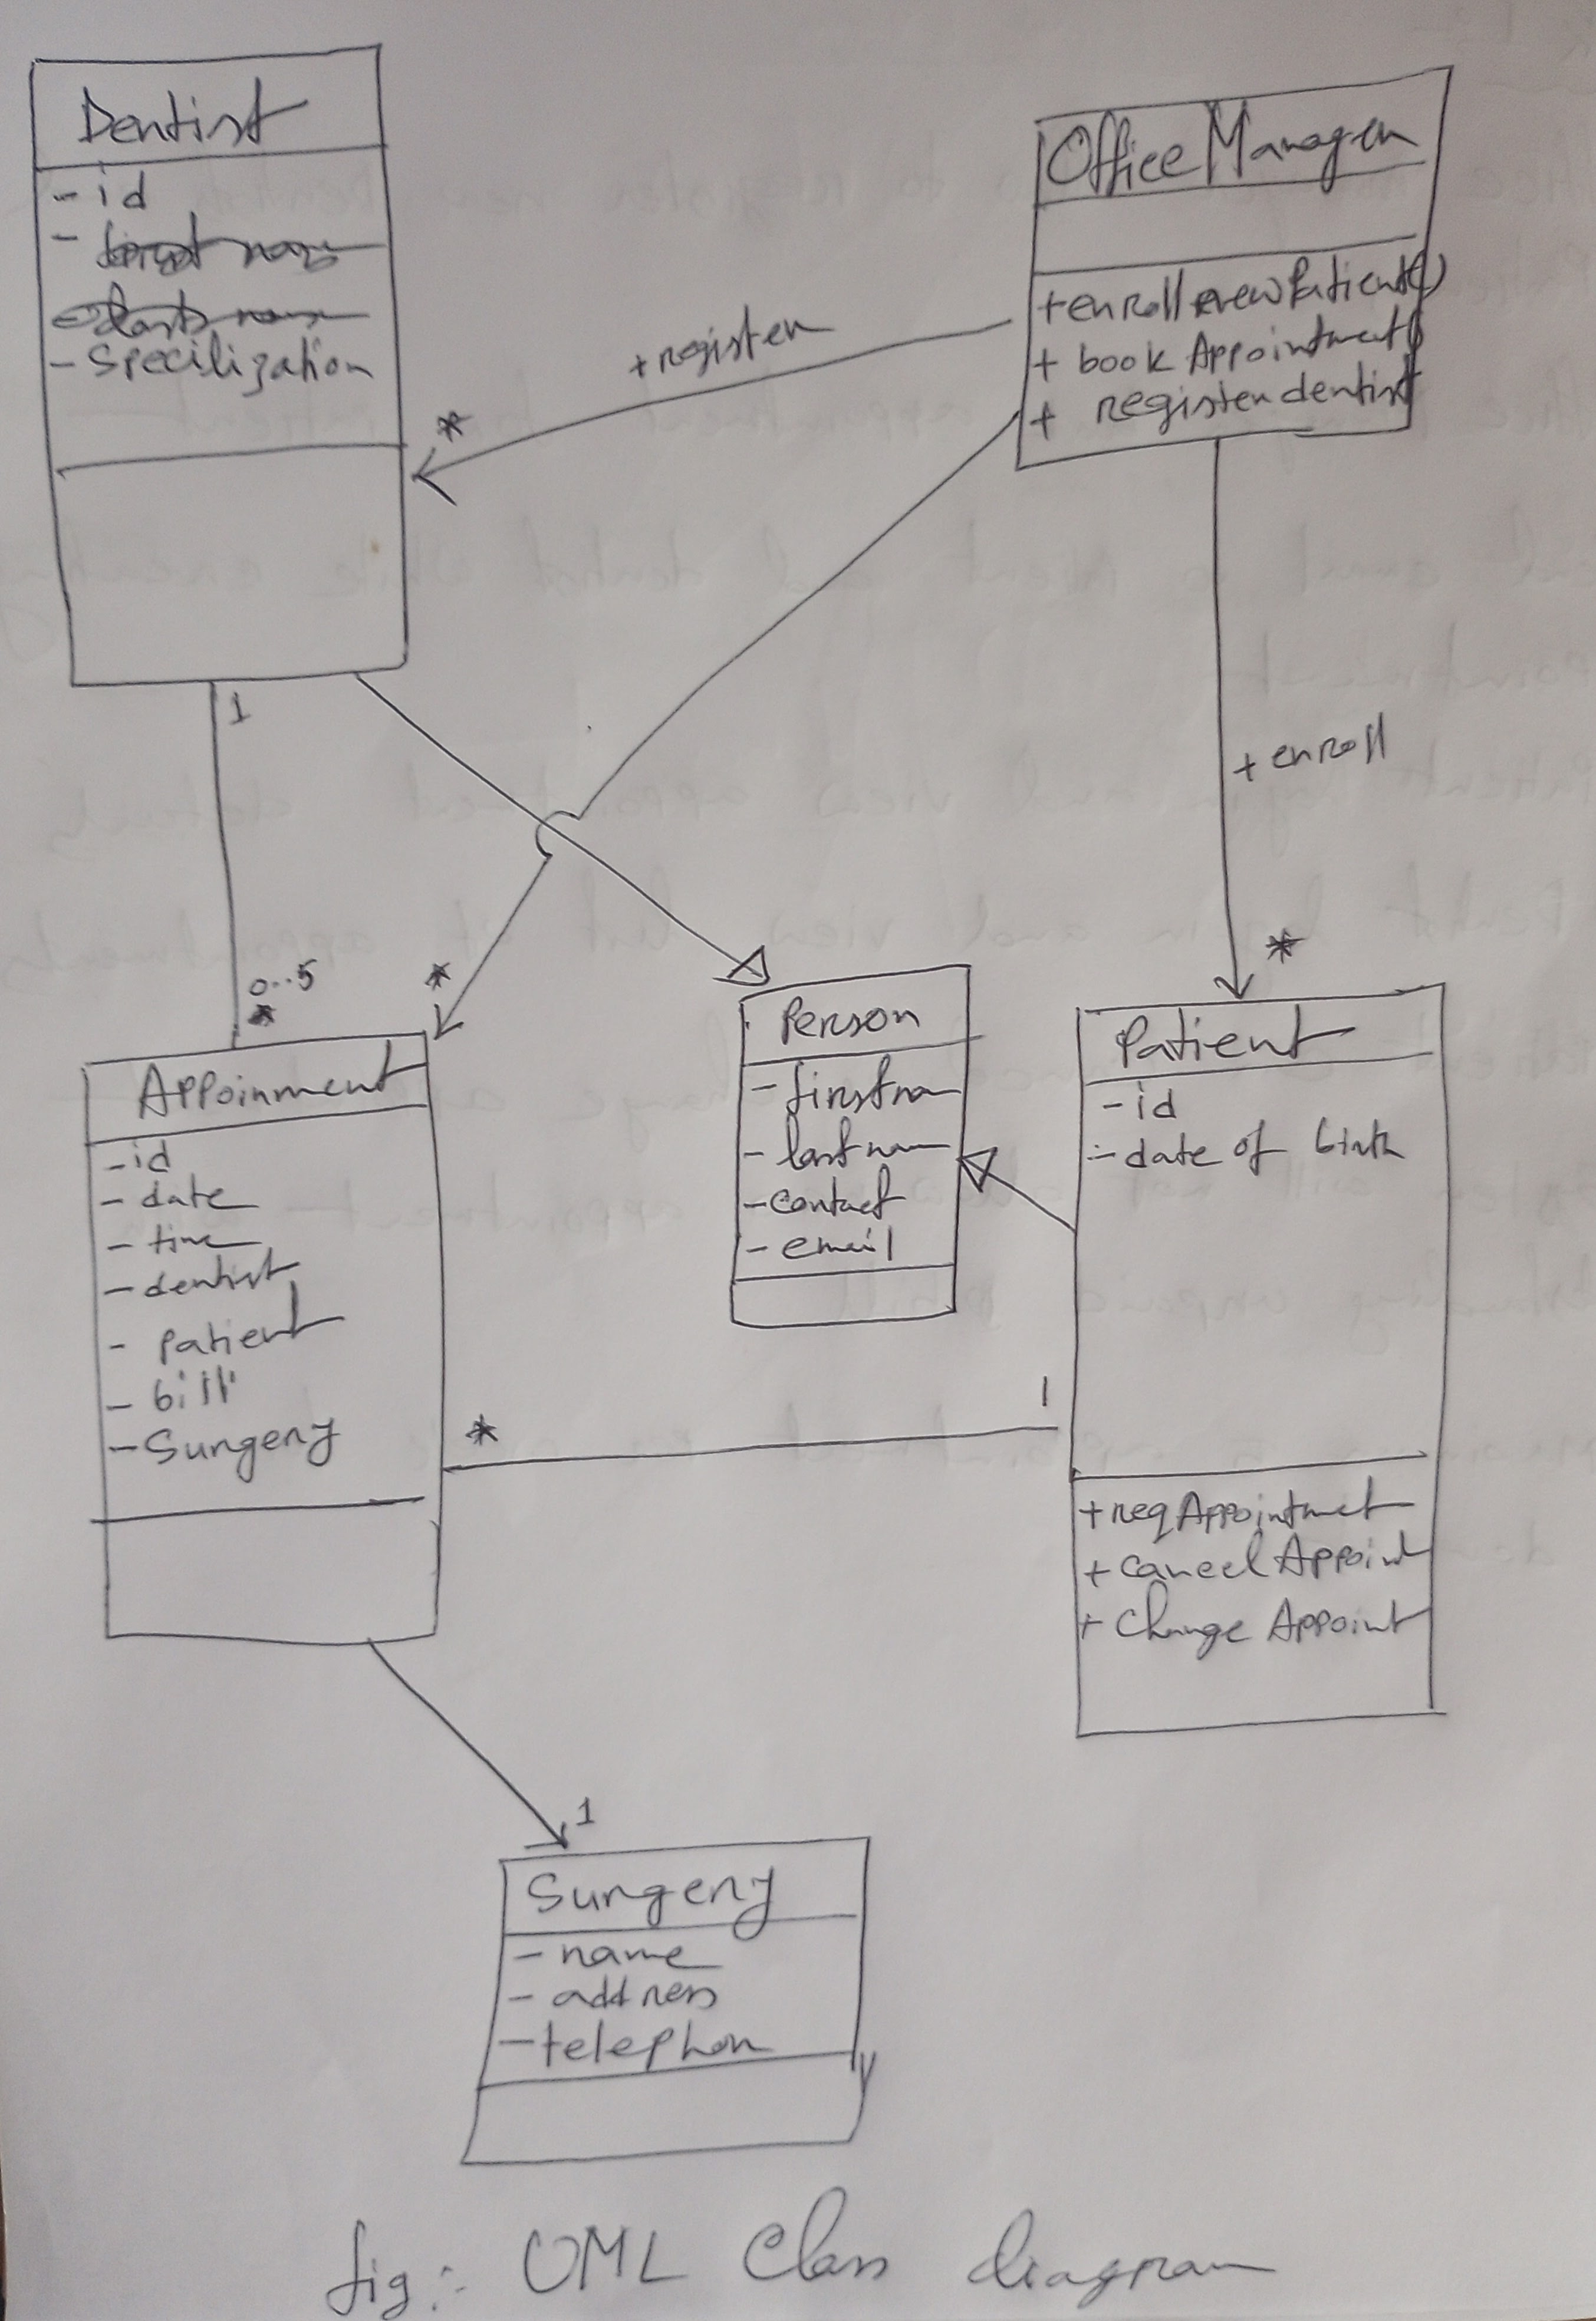 Dentist
- id
- Specilization
Office Manager
+ enroll newPatient()
+ book Appointment()
+ register dentist
+ register
*
1
0..5
*
*
+ enroll
*
Appoinment
- id
- date
- time
- dentist
- patient
- bill
- Surgery
Person
- firstname
- lastname
- contact
- email
Patient
- id
- date of birth
+ reqAppointmet
+ cancel Appoint
+ Change Appoint
*
1
1
Surgery
- name
- address
- telephon
fig: UML Class diagram